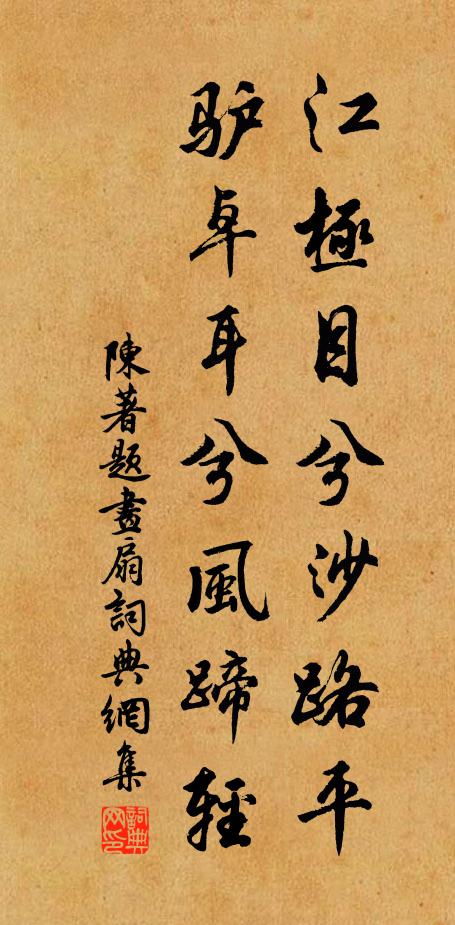 江極目兮沙路平
驴卓耳兮風蹄輕
陳著題畫扇詞典網集
詞典网印